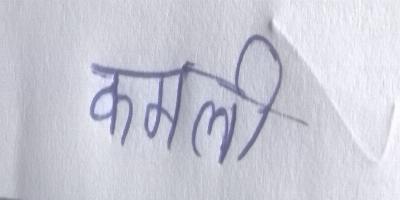 कमली